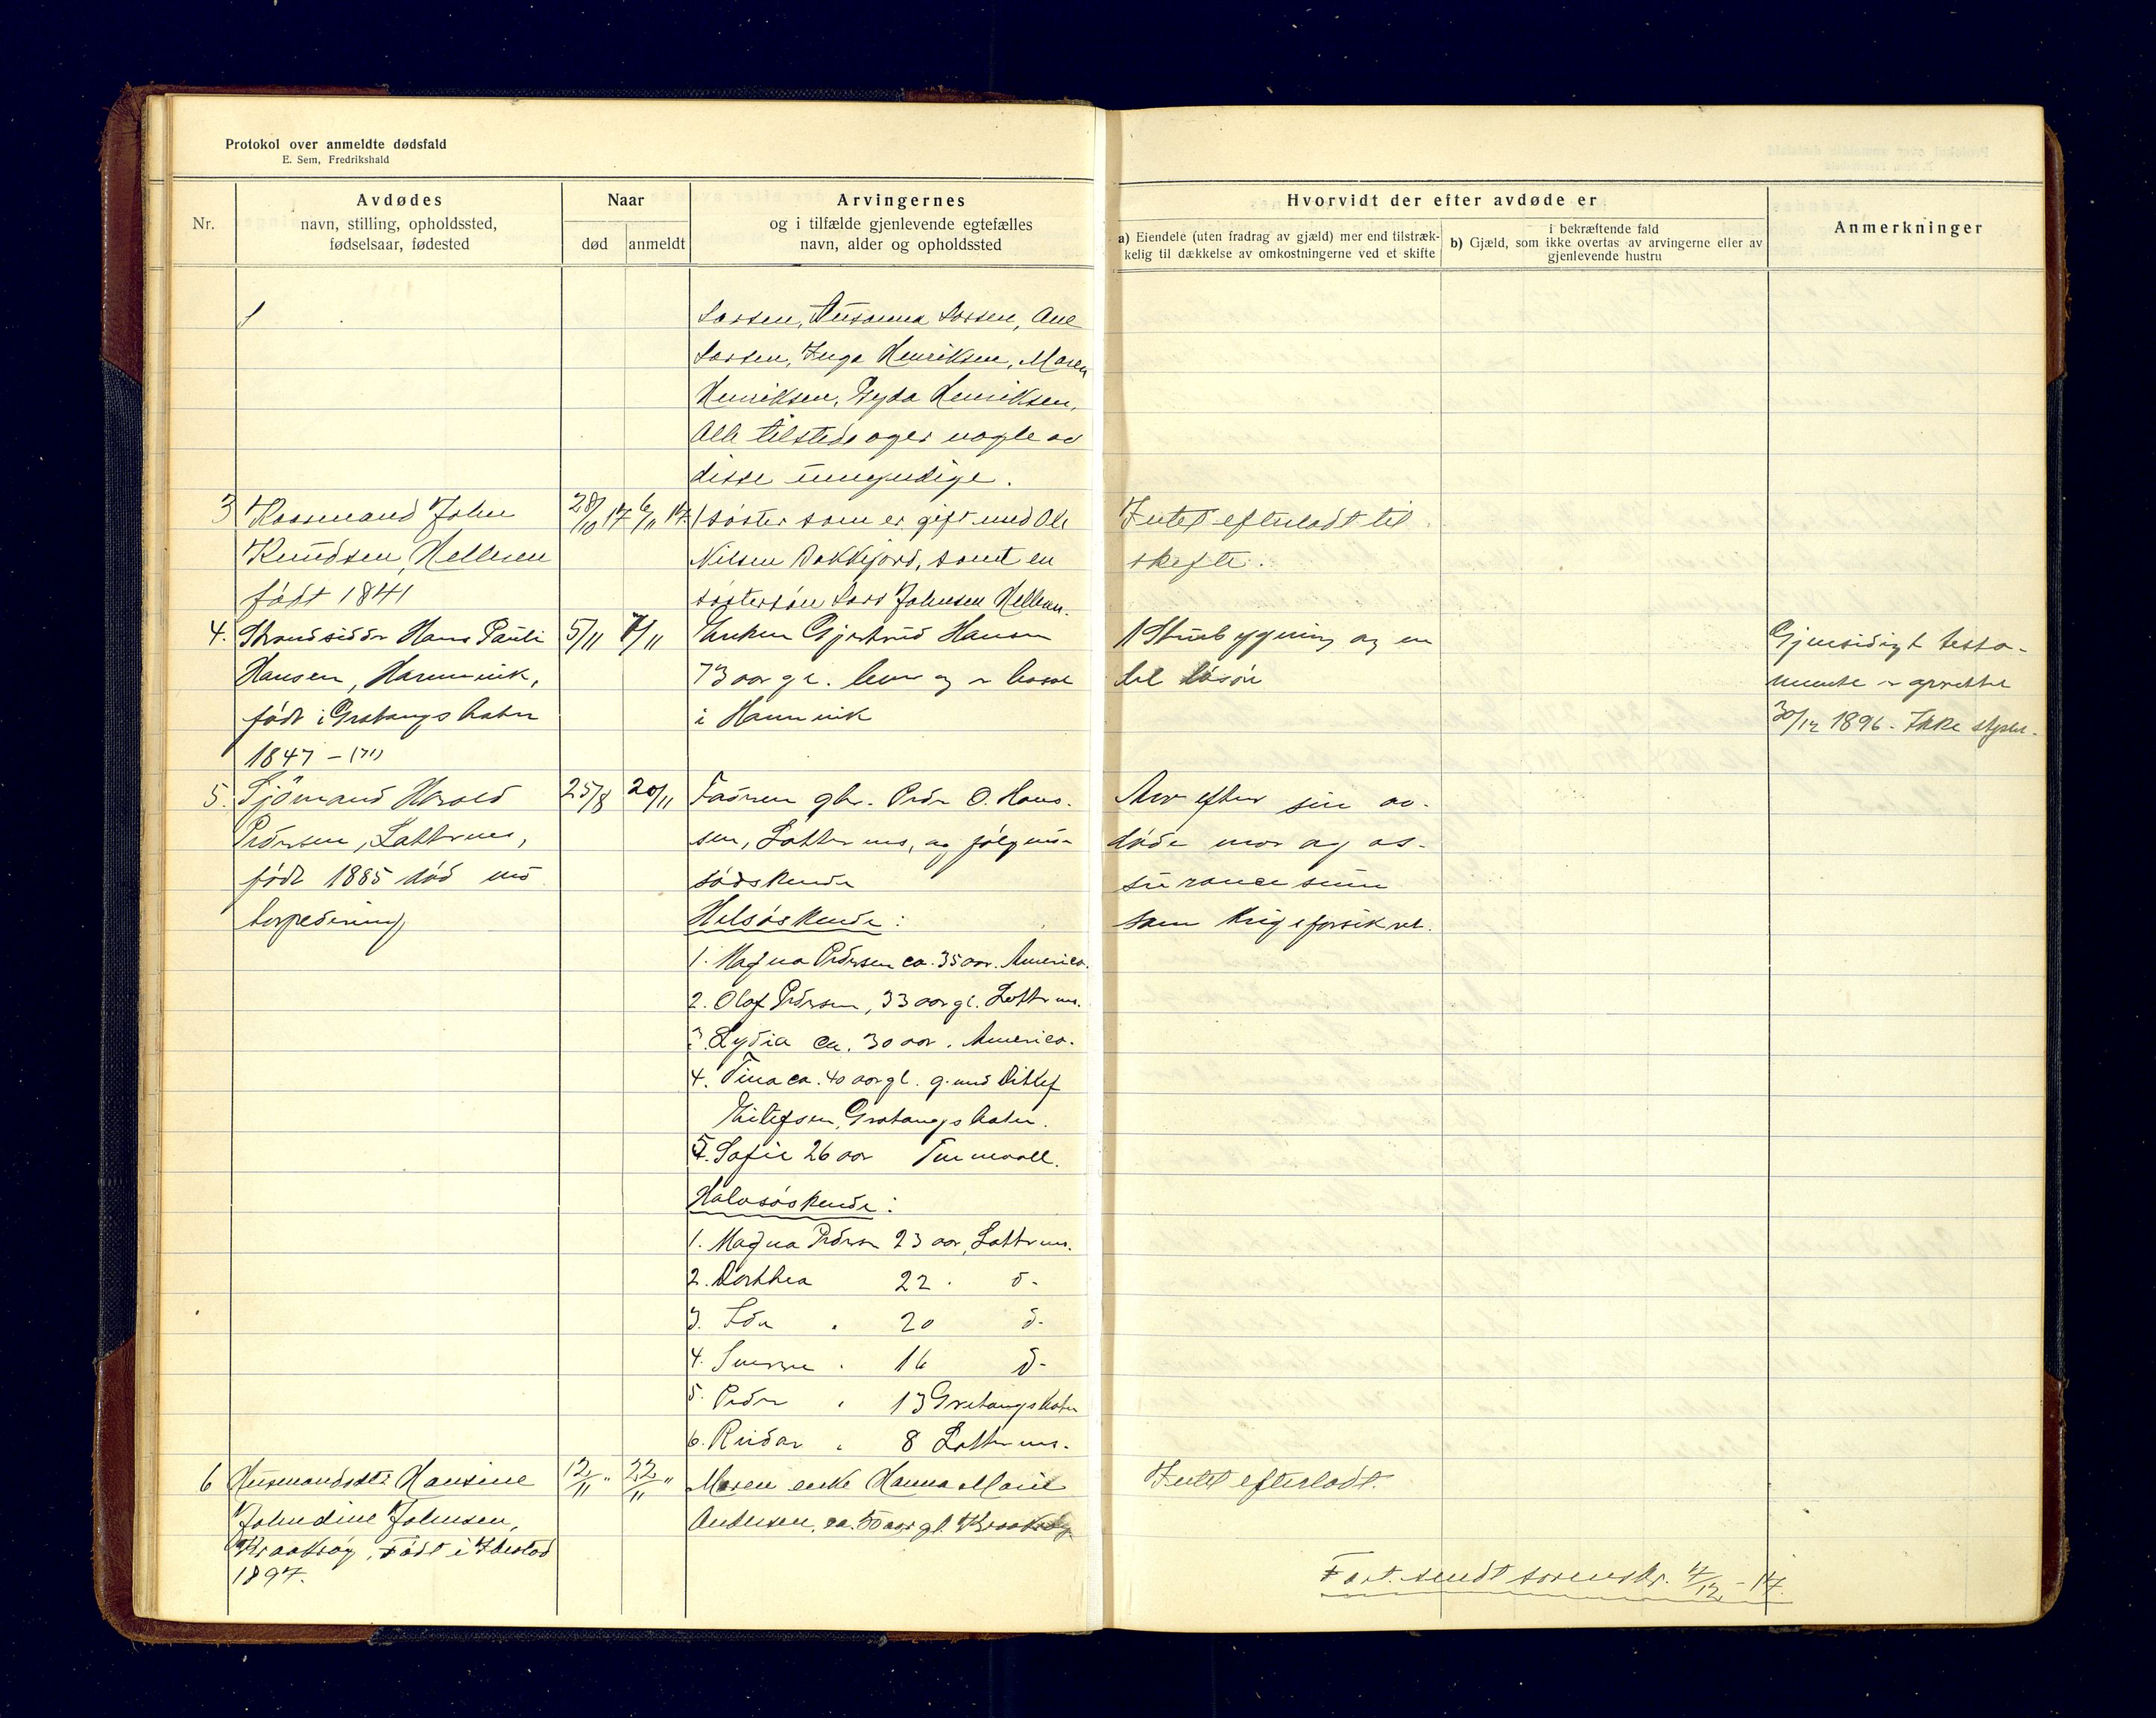 Protokol over anmeldte dødsfald
E. Sem, Fredrikshald
Nr.
Avdødes
navn, stilling, opholdssted,
fødselsaar, fødested
Naar
død
anmeldt
Arvingernes
og i tilfælde gjenlevende egtefælles
navn, alder og opholdssted
Hvorvidt der efter avdøde er
a) Eiendele (uten fradrag av gjæld) mer end tilstræk-
kelig til dækkelse av omkostningerne ved et skifte
i bekræftende fald
b) Gjæld, som ikke overtas av arvingerne eller av
gjenlevende hustru
Anmerkninger
Larsen, Susanna Larsen, Ane
Larsen, Inga Henriksen, Maren
Henriksen, Gyda Henriksen,
Alle tilstede oger nogle av
disse umyndige.
3 Kaarmand John
Knudsen, Hellesen
født 1841
28/10 17
6/11 17
1 søster som er gift med Ole
Nilsen Dokkfjord, samt en
søstersøn Lars Johnsen Hellesen.
Intet efterladt til
skifte.
4. Strandsidder Hans Pauli
Hansen, Hamnvik,
født i Gratangsbotn
1847 - (71)
5/11
7/11
Enken Gjertrud Hansen
73 aar gl. bor og er bosat
i Hamnvik
1 Stuebygning og en
del løsøre
Gjensidigt testa-
mente er oprettet
30/12 1896. Ikke
5. Sjömand Harald
Pedersen, Løkternes,
født 1885 død ved
torpedering
25/8
20/11
Faderen gbr. Peder O. Han-
sen, Løkternes, og følgende
sødskende
Helsøskende:
1. Magna Pedersen ca. 35 aar. America.
2. Olaf Pedersen, 33 aar gl. Løkternes.
3. Lydia ca. 30 aar. America.
4. Tina ca. 40 aar gl. g. med Ditlef
Eilefsen, Gratangsbotn.
5. Sofie 26 aar
Halvsøskende:
1. Magna Pedersen 23 aar, Løkternes.
2. Dorthea 22 . d-
3. Ida . 20 d-
4. Sverre . 16 d-
5. Peder . 13 Gratangsbotn
6. Reidar . 8 Løkternes.
Arv efter sin av-
døde mor og as-
surancesum
som krigsforsikret.
6 Husmandsdtr Hansine
Johndine Johnsen,
Kraakrøy, Født i Ibestad
1897.
12/11 "
22/11 "
Moren enke Hanna Marie
Andersen, ca. 50 aar gl. Kraakrøy
Intet efterladt.
Fort. sendt sorenskr. 4/12 - 17.